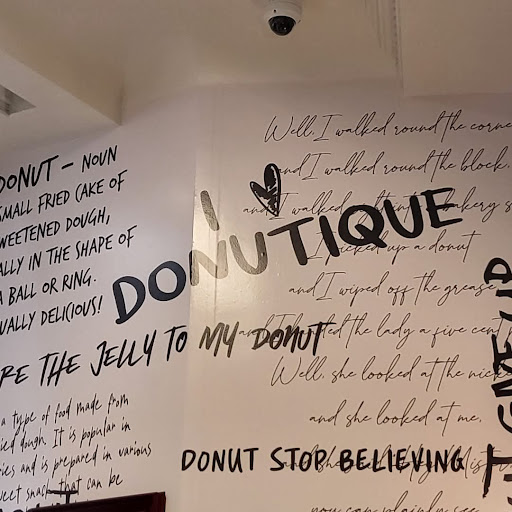 DONUT - NOUN
SMALL FRIED CAKE OF
SWEETENED DOUGH,
IN THE SHAPE OF
A BALL OR RING.
DELICIOUS!
I
DONUTIQUE
THE JELLY TO MY DONUT
a type of food made from
dough. It is popular in
and is prepared in various
snack that can be
Well, I walked round the
and I walked round the block,
and I walked
I picked up a donut
and I wiped off the grease
the lady a five cent
Well, she looked at the
and she looked at me,
DONUT STOP BELIEVING
you can plainly see